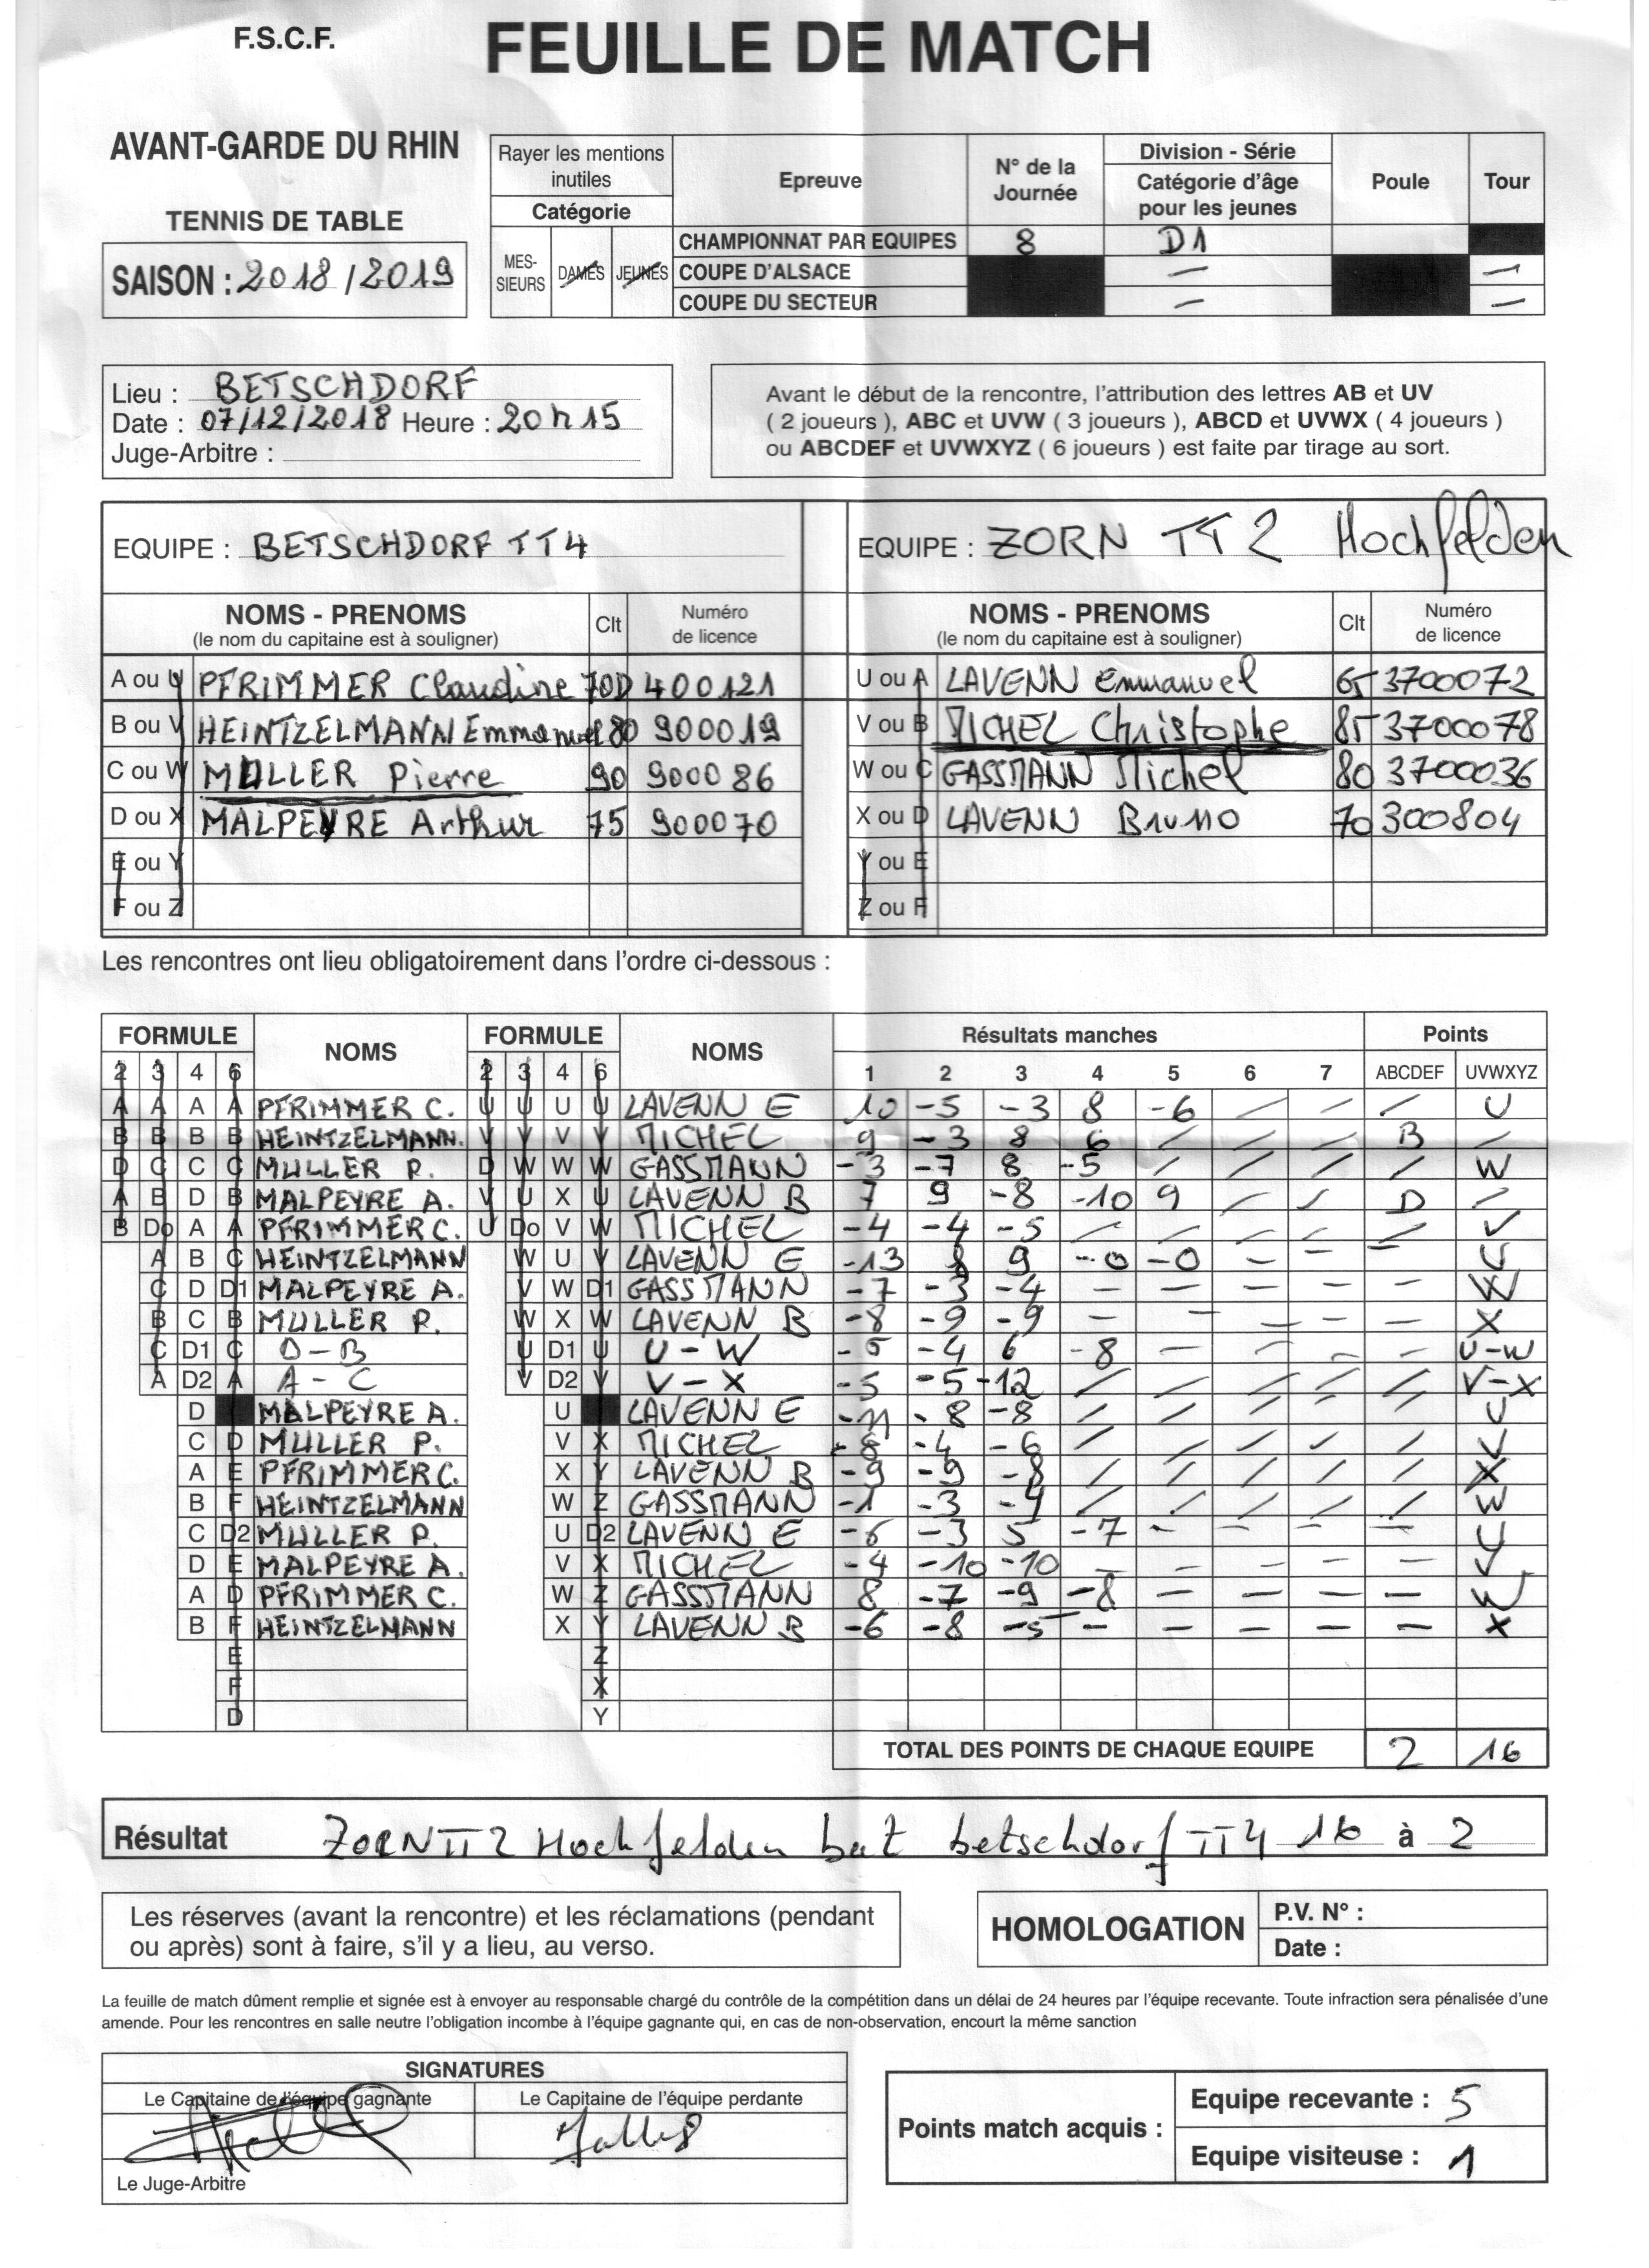 F.S.C.F.
FEUILLE DE MATCH
AVANT-GARDE DU RHIN
TENNIS DE TABLE
SAISON : 2018 / 2019
Rayer les mentions inutiles
Catégorie
MES-SIEURS DAMES JEUNES
Epreuve
N° de la Journée
Division - Série
Catégorie d'âge pour les jeunes
Poule
Tour
CHAMPIONNAT PAR EQUIPES 8 D1
COUPE D'ALSACE — —
COUPE DU SECTEUR — —
Lieu : BETSCHDORF
Date : 07/12/2018 Heure : 20h15
Juge-Arbitre :
Avant le début de la rencontre, l'attribution des lettres AB et UV
( 2 joueurs ), ABC et UVW ( 3 joueurs ), ABCD et UVWX ( 4 joueurs )
ou ABCDEF et UVWXYZ ( 6 joueurs ) est faite par tirage au sort.
EQUIPE : BETSCHDORF TT4
EQUIPE : ZORN TT 2 Hochfelden
NOMS - PRENOMS Clt Numéro de licence
(le nom du capitaine est à souligner)
NOMS - PRENOMS Clt Numéro de licence
(le nom du capitaine est à souligner)
A ou U PFRIMMER Claudine 70D 400121
U ou A LAVENN Emmanuel 65 3700072
B ou V HEINTZELMANN Emmanuel 80 900019
V ou B MICHEL Christophe 85 3700078
C ou W MULLER Pierre 90 900086
W ou C GASSMANN Michel 80 3700036
D ou X MALPEYRE Arthur 75 900070
X ou D LAVENN Bruno 70 300804
E ou Y
Y ou E
F ou Z
Z ou F
Les rencontres ont lieu obligatoirement dans l'ordre ci-dessous :
FORMULE NOMS FORMULE NOMS Résultats manches Points
2 3 4 6 2 3 4 6 1 2 3 4 5 6 7 ABCDEF UVWXYZ
A A A A PFRIMMER C. U U U U LAVENN E 10 -5 -3 8 -6 / / / U
B B B B HEINTZELMANN. V V V V MICHEL 9 -3 8 6 / / / B /
D C C C MULLER P. D W W W GASSMANN -3 -7 8 -5 / / / / W
A B D B MALPEYRE A. V U X U LAVENN B 7 9 -8 -10 9 / / D /
B Do A A PFRIMMER C. U Do V W MICHEL -4 -4 -5 / / / / / V
A B C HEINTZELMANN W U V LAVENN E -13 8 9 -0 -0 — — — U
C D D1 MALPEYRE A. V W D1 GASSMANN -7 -3 -4 — — — — — W
B C B MULLER P. W X W LAVENN B -8 -9 -9 — — — — — X
C D1 C D-B U D1 U U-W -5 -4 6 -8 — — — — U-W
A D2 A A-C V D2 V V-X -5 -5 -12 / / / / / V-X
D MALPEYRE A. U LAVENN E -11 -8 -8 / / / / / U
C D MULLER P. V X MICHEL -8 -4 -6 / / / / / V
A E PFRIMMER C. X Y LAVENN B -9 -9 -8 / / / / / X
B F HEINTZELMANN W Z GASSMANN -1 -3 -4 / / / / / W
C D2 MULLER P. U D2 LAVENN E -6 -3 5 -7 — — — — U
D E MALPEYRE A. V X MICHEL -4 -10 -10 — — — — — V
A D PFRIMMER C. W Z GASSMANN 8 -7 -9 -8 — — — — W
B F HEINTZELMANN X Y LAVENN B -6 -8 -5 — — — — — X
E Z
F X
D Y
TOTAL DES POINTS DE CHAQUE EQUIPE 2 16
Résultat ZORN TT 2 Hochfelden bat betschdorf TT4 16 à 2
Les réserves (avant la rencontre) et les réclamations (pendant
ou après) sont à faire, s'il y a lieu, au verso.
HOMOLOGATION
P.V. N° :
Date :
La feuille de match dûment remplie et signée est à envoyer au responsable chargé du contrôle de la compétition dans un délai de 24 heures par l'équipe recevante. Toute infraction sera pénalisée d'une
amende. Pour les rencontres en salle neutre l'obligation incombe à l'équipe gagnante qui, en cas de non-observation, encourt la même sanction
SIGNATURES
Le Capitaine de l'équipe gagnante
Le Capitaine de l'équipe perdante
Le Juge-Arbitre
Points match acquis :
Equipe recevante : 5
Equipe visiteuse : 1